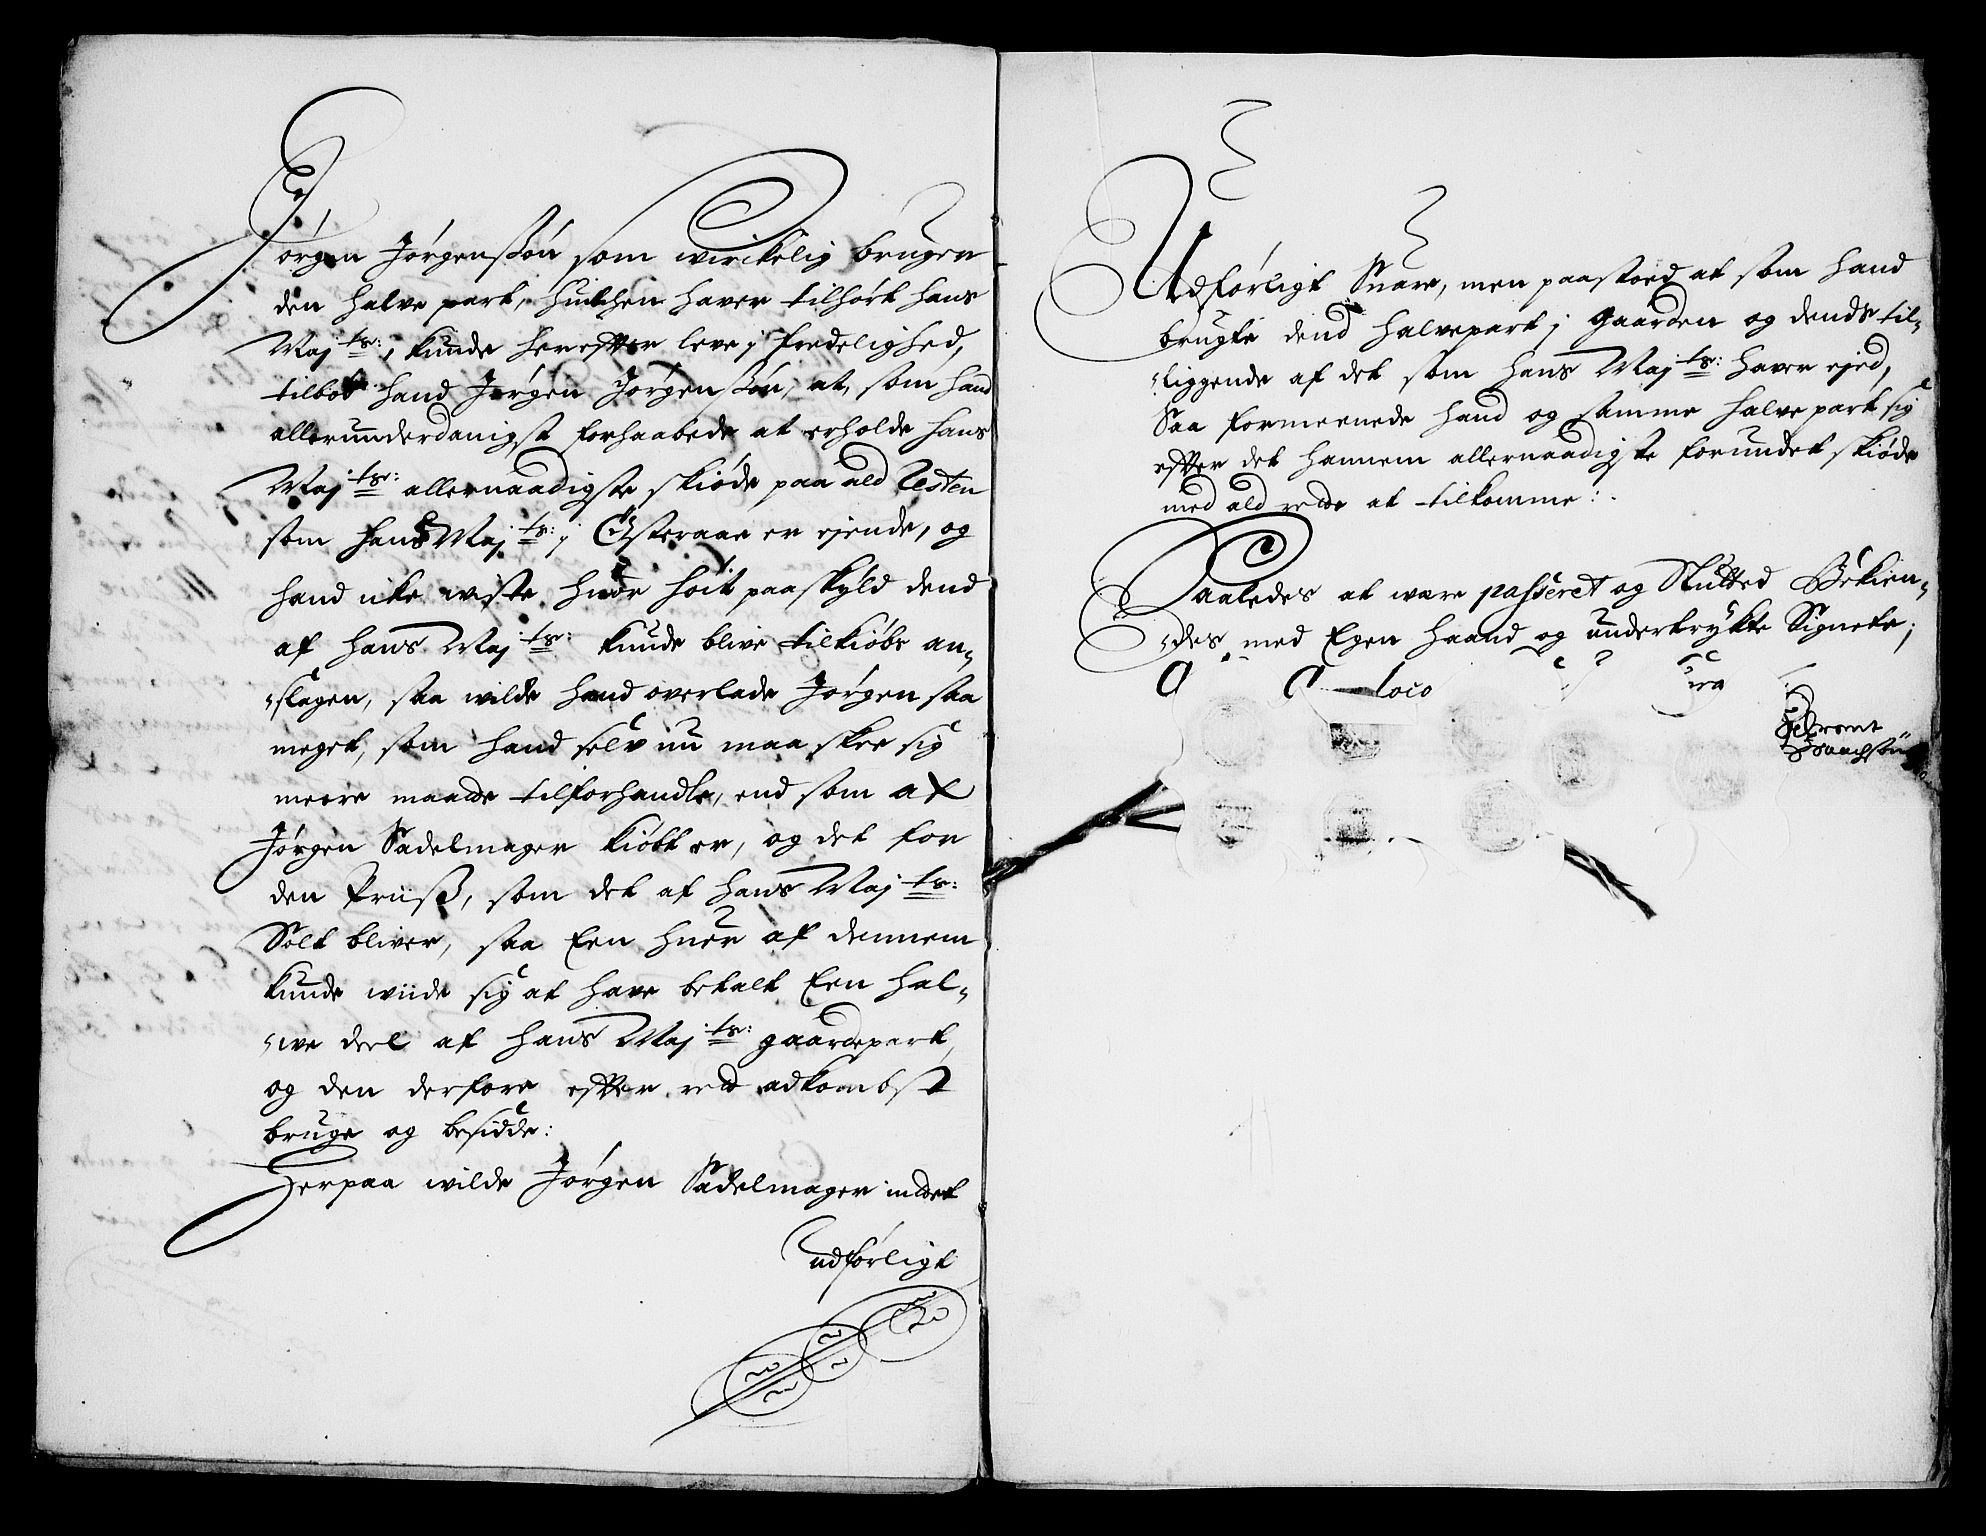 Jørgen Jørgenssøn som wirckelig bruger
den halve part, huilchen haver tilhørt hans
Maj:ts:, kunde herefter leve j fredelighed,
tilbød hand Jørgen Jørgenssøn, at, som hand
allerunderdanigst forhaabede at erholde hans
Maj:ts: allernaadigste skiøde paa ald Resten
som hans Maj:ts: j Østeraae er ejende, og
hand icke wiste huor høit paaskyld dend
af hans Maj:ts: kunde blive tilkiøbe an-
slagen, saa wilde hand overlade Jørgen saa
meget, som hand selv nu maa skee sig
meere maatte tilforhandle, end som af
Jørgen Sadelmager kiøbt er, og det for
den Priiss, som det af hans Maj:ts:
Solt bliver, saa Een huer af dennem
kunde wiide sig at have betalt Een hal-
we deel af hans Maj:ts: gaardepart,
og den derfore efter rett adkombst
bruge og besidde:
Herpaa wilde Jørgen Sadelmager indtet
udførligt
Udførligt Suare, men paastoed at som hand
brugte dend halvepart j gaarden og dends til-
liggende af det som hans Maj:ts: haver ejed,
Saa formeenede hand og samme halve part sig
efter det hannem allernaadigste forundet skiøde
med ald rette at tilkomme:
Saaledes at være passeret og Slutted Bekien-
des med Egen haand og undertrykte Signete;
loco